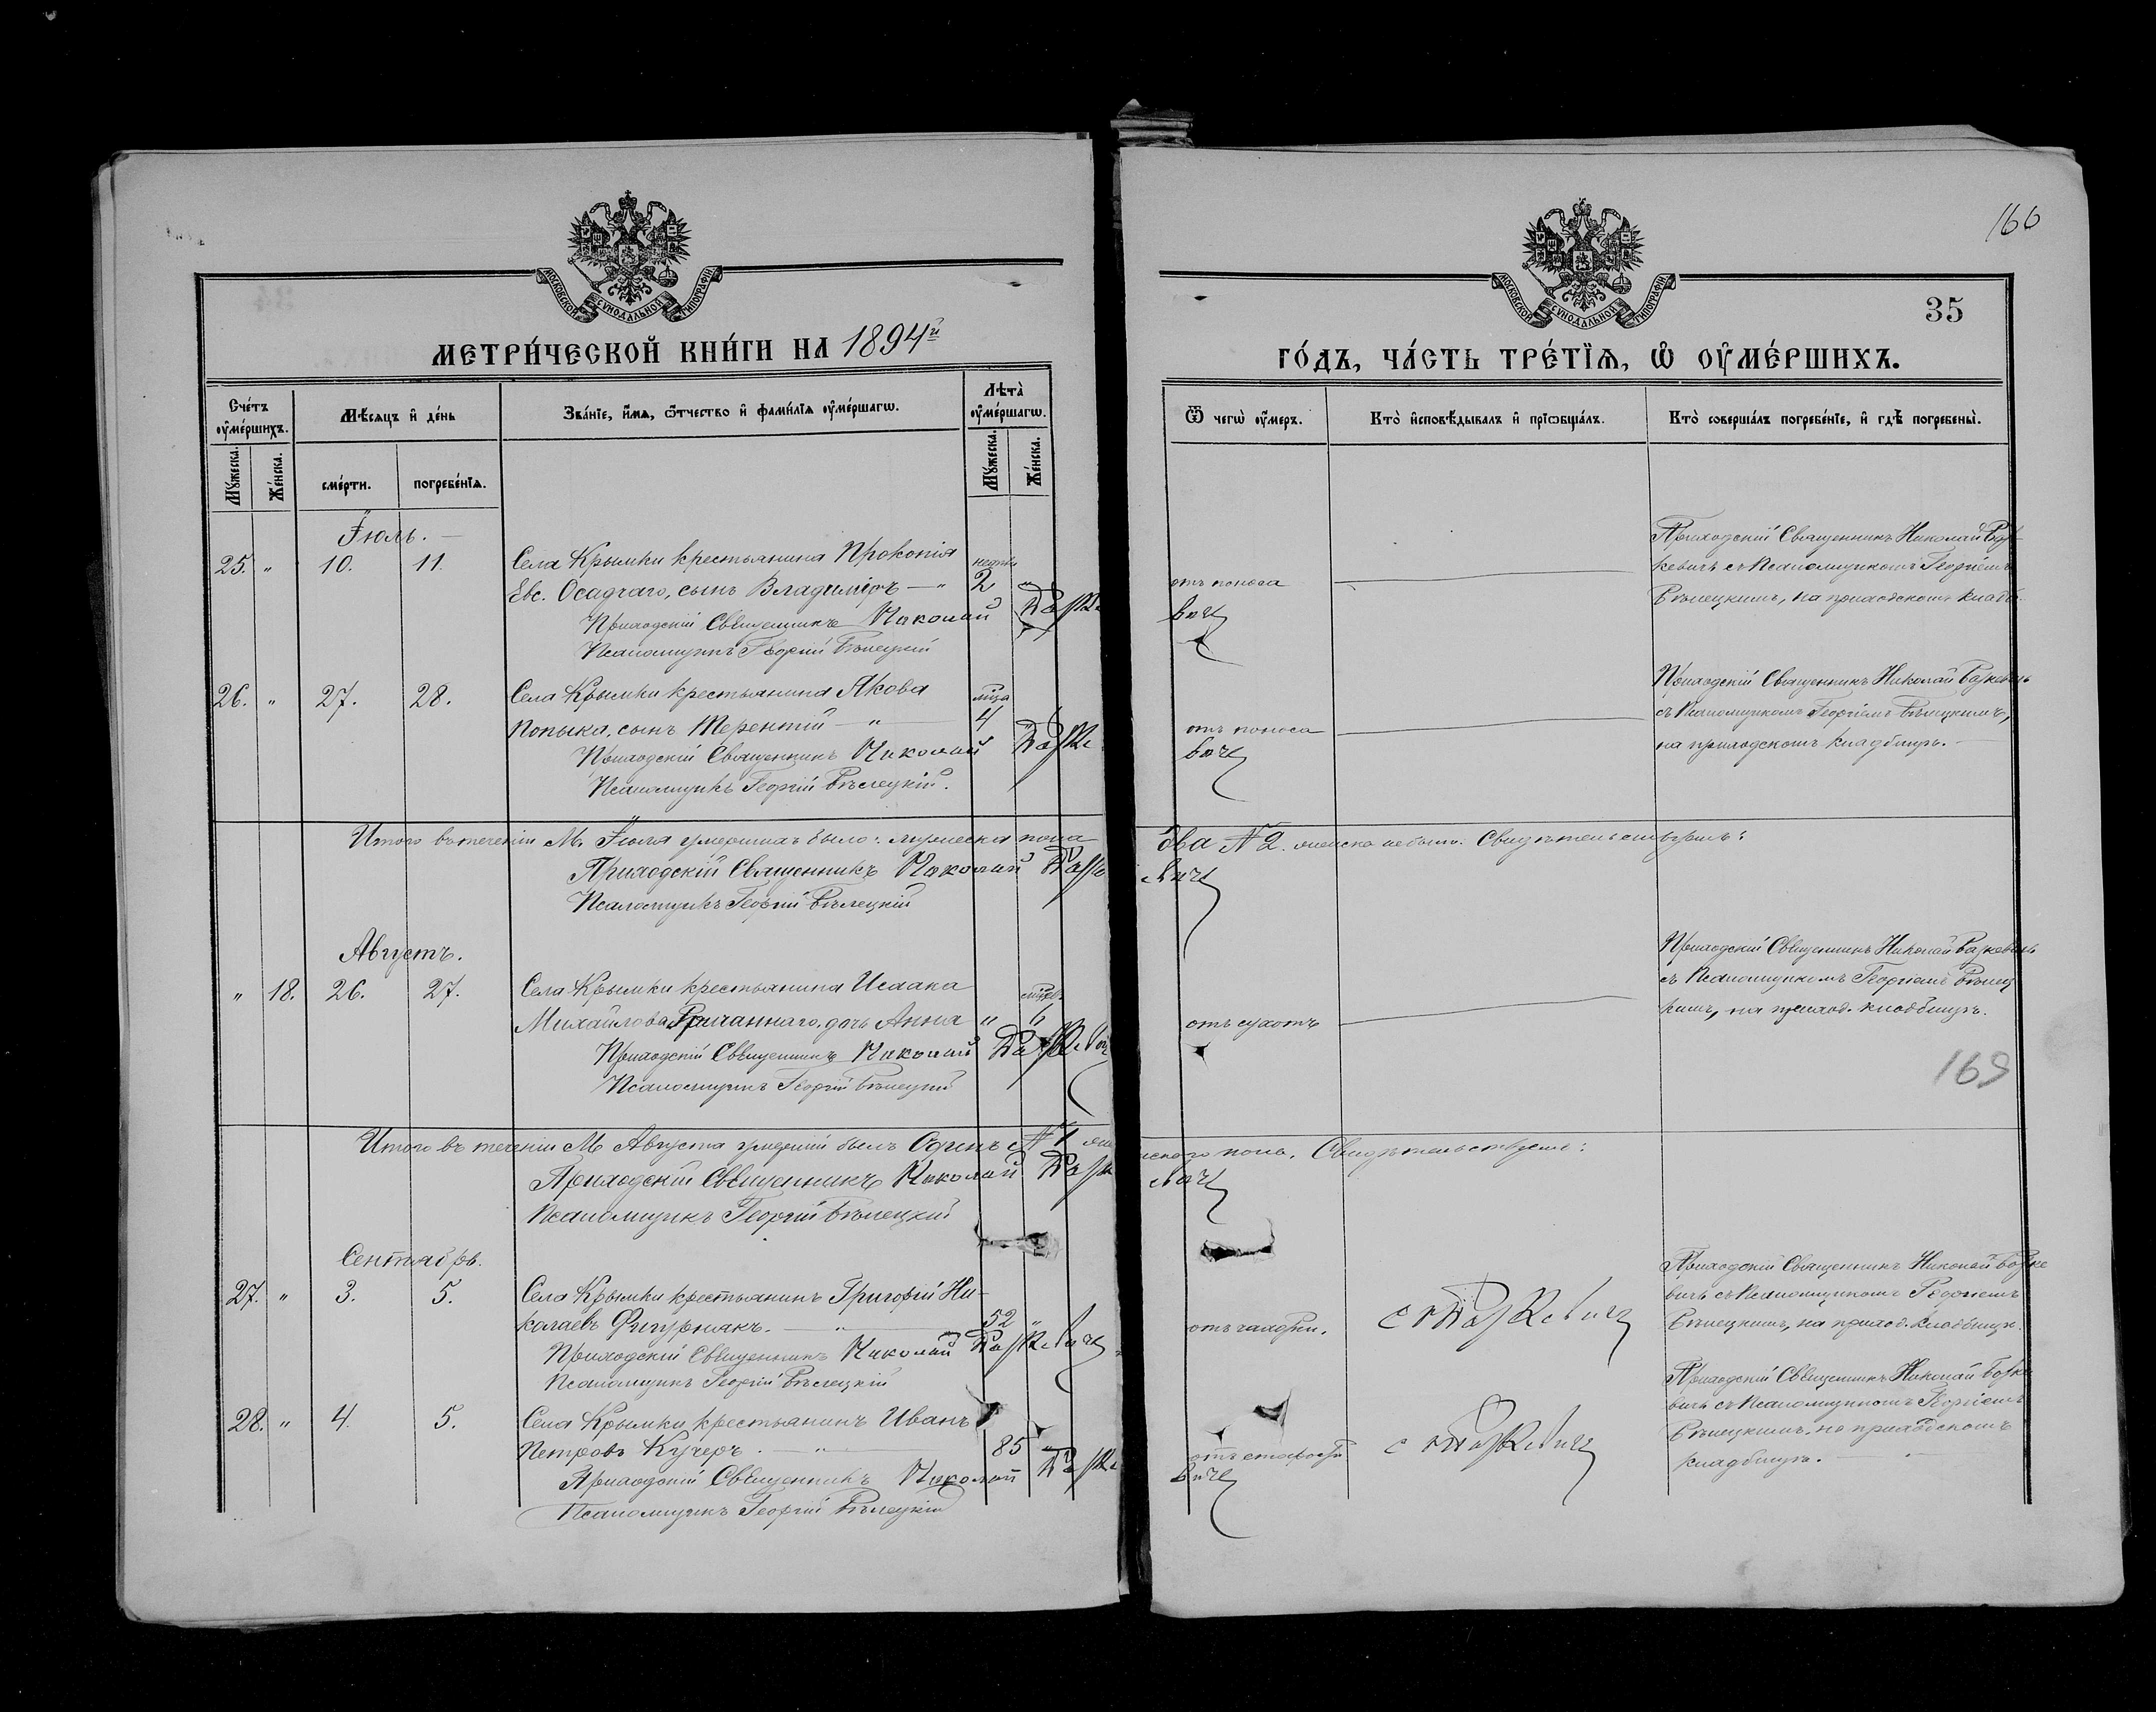 МОСКОВСКОЙ СѴНОДАЛЬНОЙ ТИПОГРАФІИ
МЕТРИ́ЧЕСКОЙ КНИ́ГИ НА 1894й
Сче́тъ оумéршихъ.
Мꙋ́жеска.
Же́нска.
Мѣ́сяцъ и де́нь
сме́рти.
погребе́нїѧ.
Зва́нїе, и́мѧ, ѻ҆́тчество и фами́лїѧ оумéршагѡ.
Лѣта̀ оумéршагѡ.
Мꙋ́жеска.
Же́нска.
Іюль.
25. " 10. 11. Села Крымки крестьянина Прокопія недѣли
Евс. Осадчаго, сынъ Владиміръ — " 2 "
Приходскій Священникъ Николай
Псаломщикъ Георгій Бѣлецкій
26. " 27. 28. Села Крымки крестьянина Якова мѣся
Попыка, сынъ Терентій — " 4 "
Приходскій Священникъ Николай
Псаломщикъ Георгій Бѣлецкій.
Итого въ теченіи М. Іюля умершихъ было: мужеска пола
Приходскій Священникъ Николай
Псаломщикъ Георгій Бѣлецкій
Августъ.
" 18. 26. 27. Села Крымки крестьянина Исаака
Михайлова дочь Анна " 6
Приходскій Священникъ Николай
Псаломщикъ Георгій Бѣлецкій
Итого въ теченіи М. Августа умершій былъ Одинъ № 1 женского пола. Свидѣтельствуемъ:
Приходскій Священникъ Николай
Псаломщикъ Георгій Бѣлецкій
Сентябрь.
27. " 3. 5. Села Крымки крестьянинъ Григорій Ни-
колаевъ Фигурнакъ. — " 52 "
Приходскій Священникъ Николай
Псаломщикъ Георгій Бѣлецкій
28. " 4. 5. Села Крымки крестьянинъ Иванъ
Петровъ Кучеръ. — " 85 "
Приходскій Священникъ Николай
Псаломщикъ Георгій Бѣлецкій
166
МОСКОВСКОЙ СѴНОДАЛЬНОЙ ТИПОГРАФІИ
35
ГО́ДЪ, ЧА́СТЬ ТРЕ́ТЇѦ, Ѡ҆ ОУМЕ́РШИХЪ.
Ѿ чегѡ̀ оу́меръ.
Кто̀ и҆сповѣ́дывалъ и҆ прїѡбща́лъ.
Кто̀ соверша́лъ погребе́нїе, и҆ гдѣ̀ погребены̀.
отъ поноса
Приходскій Священникъ Николай
кевичъ съ Псаломщикомъ Георгіемъ
Бѣлецкимъ, на приходскомъ кладб.
отъ поноса
Приходскій Священникъ Николай
съ Псаломщикомъ Георгіемъ Бѣлецкимъ,
на приходскомъ кладбищѣ.
два № 2. женска не было. Свидѣтельствуемъ:
отъ сухотъ
Приходскій Священникъ Николай
съ Псаломщикомъ Георгіемъ Бѣлец
кимъ, на приход. кладбищѣ.
169
отъ холеры.
Приходскій Священникъ Николай
вичъ съ Псаломщикомъ Георгіемъ
Бѣлецкимъ, на приход. кладбищѣ.
отъ старости
Приходскій Священникъ Николай
вичъ съ Псаломщикомъ Георгіемъ
Бѣлецкимъ, на приходскомъ
кладбищѣ.